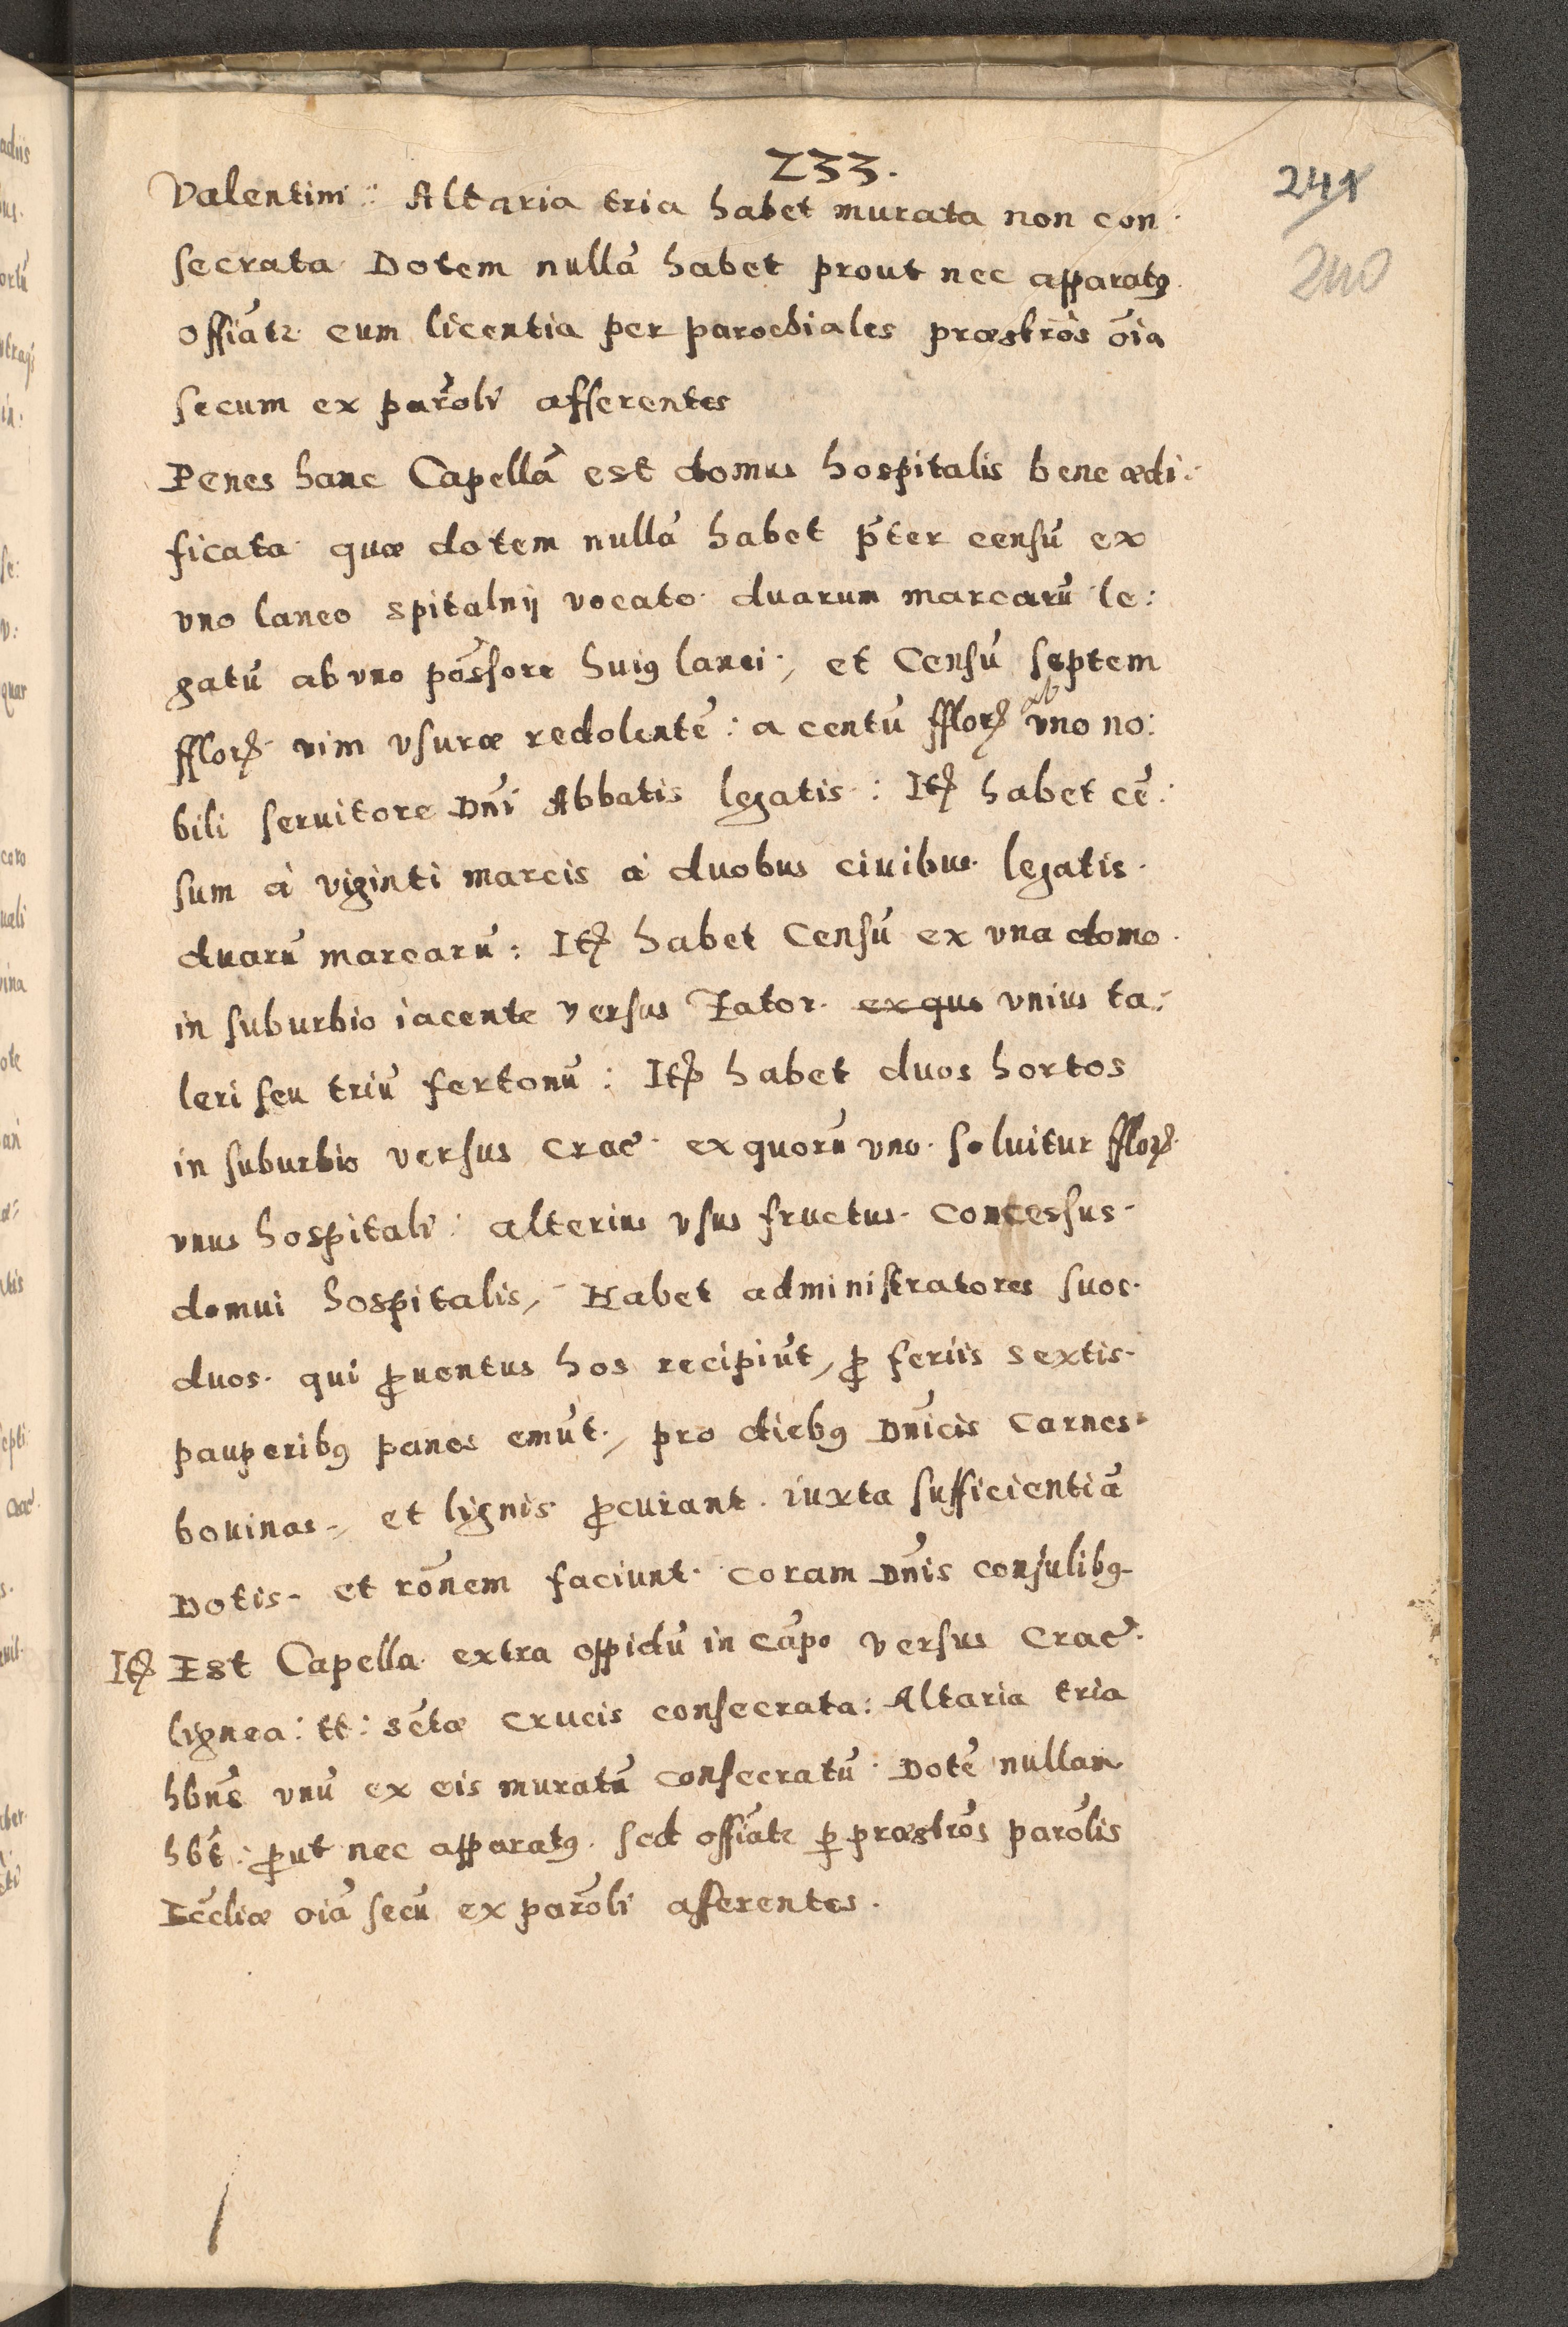 233.
241
240
Valentini: Altaria tria habet murata non con:
secrata Dotem nullā habet prout nec apparatꝯ
offiāte cum licentia per parochiales præsbr̄os ōia
secum ex parōli afferentes
Penes hanc Capellā est domus hospitalis bene ædi:
ficata quæ dotem nullā habet p̄ter censū ex
vno laneo spitalnij vocato duarum marcarū le:
gatū ab vno pōssore huiꝯ lanei, et Censū septem
fflorꝭ vim vsuræ redolentē: a centū fflorꝭ ab vno no:
bili seruitore Dn̄i Abbatis legatis: Itꝭ habet cē:
sum à viginti marcis a duobus ciuibus legatis
duarū marcarū: Itꝭ habet Censū ex vna domo
in suburbio iacente versus Zator. ex quo vnius ta:
leri seu triū fertonū: Itꝭ habet duos hortos
in suburbio versus Crac̄ ex quorū vno soluitur fflorꝭ
vnus hospitali: alterius vsus fructus concessus
domui hospitalis, Habet administratores suos
duos qui ꝓuentus hos recipiūt, ꝓ feriis sextis
pauperibꝯ panes emūt, pro diebꝯ Dn̄icis Carnes
bouinas, et lignis ꝓcurant iuxta sufficientiā
Dotis et rōnem faciunt coram Dn̄is consulibꝯ
Itꝭ Est Capella extra oppidū in cāpo versus Crac̄
lignea: tt: sc̄tæ Crucis consecrata: Altaria tria
hbn̄s vnū ex eis muratū consecratū Dotē nullam
hb̄t: ꝓut nec apparatꝯ sed offiāte ꝑ præsbrōs parōlis
Ecc̄liæ oiā secū ex parōli afferentes.